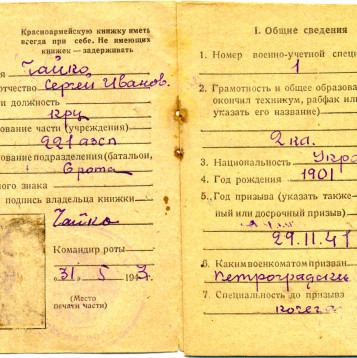 Красноармейскую книжку иметь
всегда при себе. Не имеющих
книжек — задерживать
Чайко
отчество Сергей Иванов.
и должность
кр-ц
ование части (учреждения)
221 азсп
ование подразделения (батальон,
6 рота
ного знака
подпись владельца книжки
Чайко
Командир роты
„31" 5 1943
(Место
печати части)
I. Общие сведения
1. Номер военно-учетной спец
1
2. Грамотность и общее образова
окончил техникум, рабфак или
указать его название)
2 кл.
3. Национальность Укра
4. Год рождения 1901
5. Год призыва (указать также
ный или досрочный призыв)
29.11.41
6. Каким военкоматом призван
Петроградски
7. Специальность до призыва
кочега